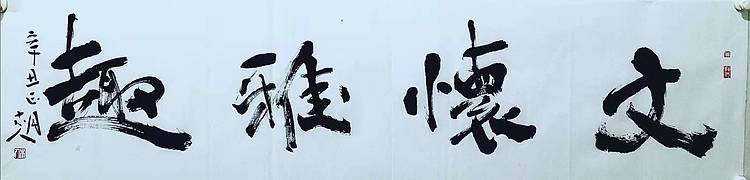 文懷雅趣
辛丑正月